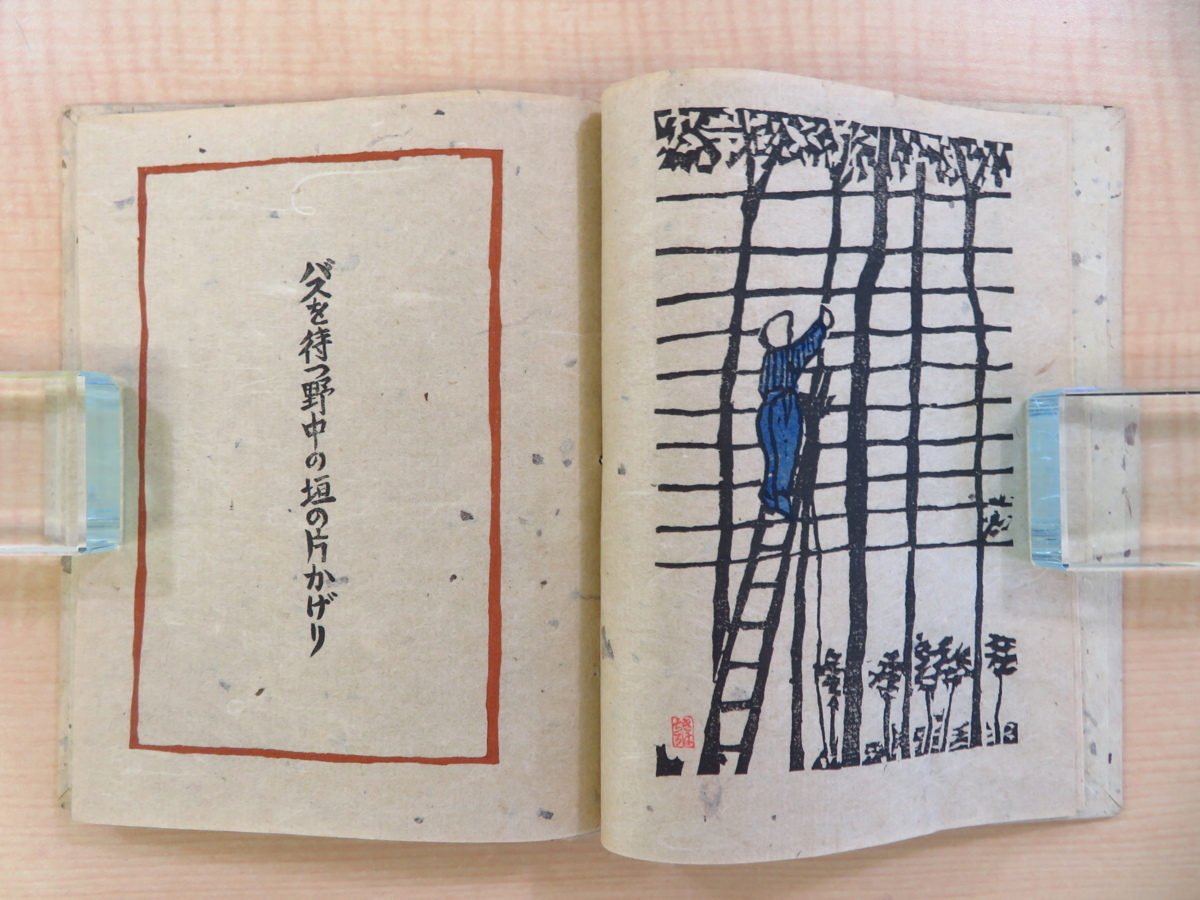 バスを待つ野中の垣の片かげり